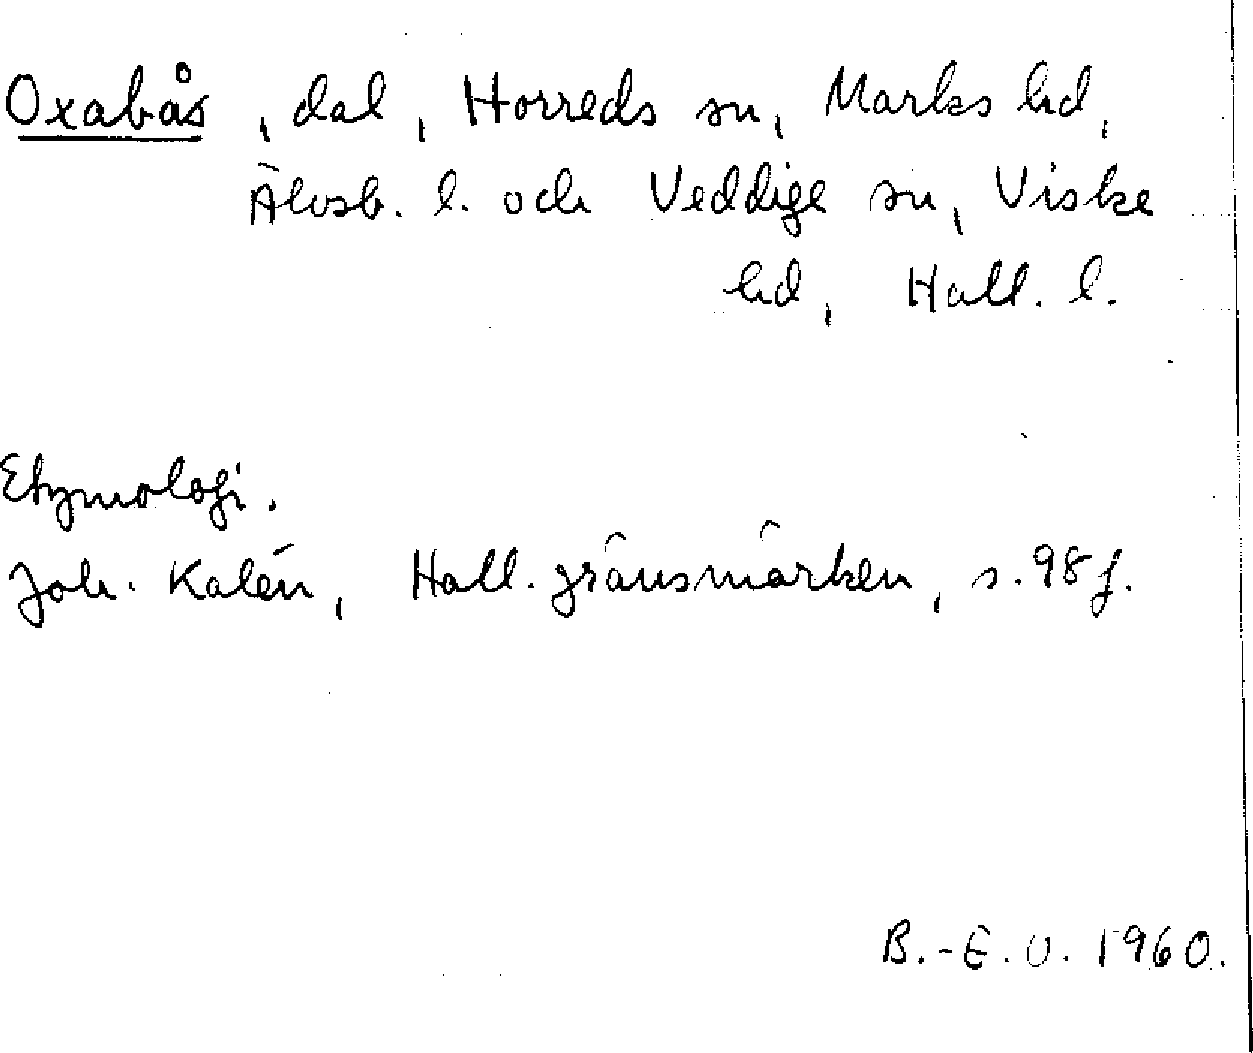 Oxabås, dal, Horreds sn, Marks hd,
Älvsb. l. och Veddige sn, Viske
hd, Hall. l.
Etymologi.
Joh. Kalén, Hall. gränsmärken, s. 98 f.
B.-E. O. 1960.